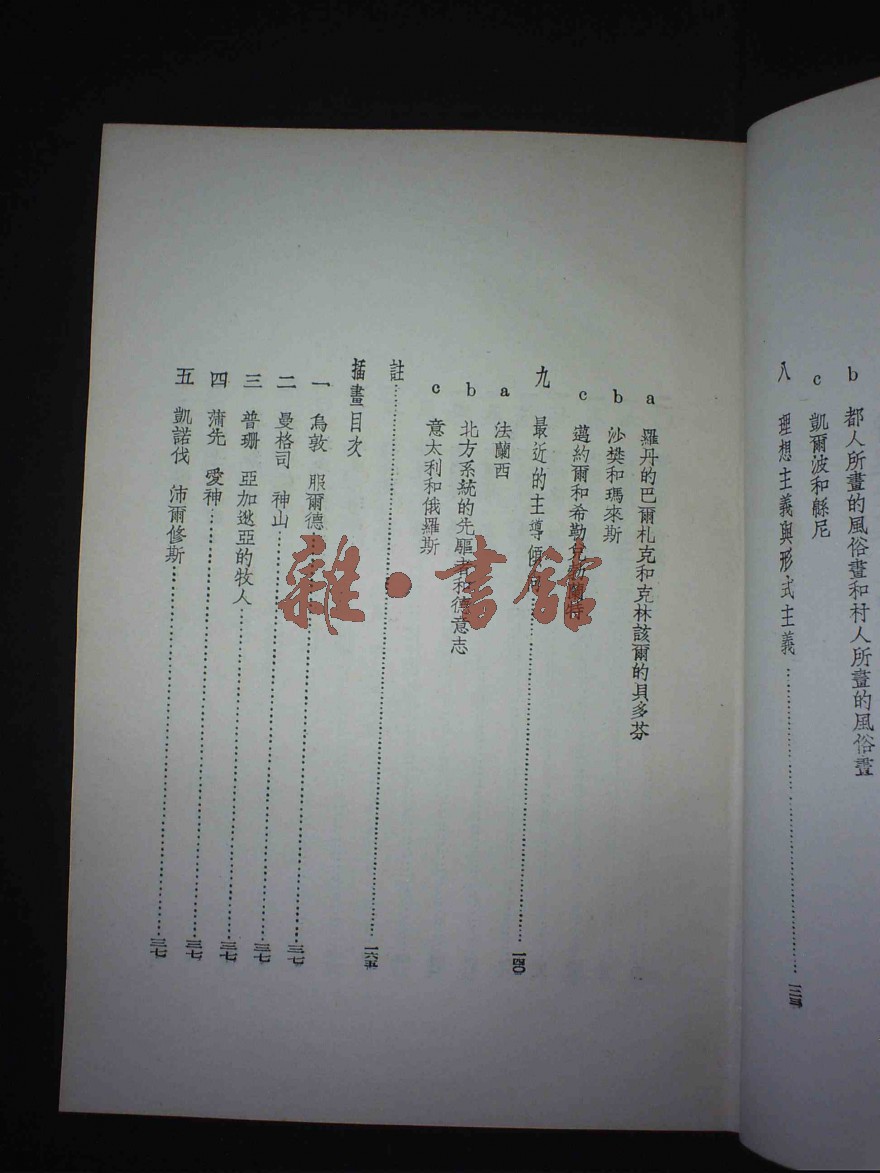 b 都人所畫的風俗畫和村人所畫的風俗畫
c 凱爾波和緜尼
八 理想主義與形式主義……一二三
a 羅丹的巴爾札克和克林該爾的貝多芬
b 沙樊和瑪來斯
c 邁約爾和希勒兌勃蘭特
九 最近的主導傾向……一四〇
a 法蘭西
b 北方系統的先驅者和德意志
c 意太利和俄羅斯
註……一六五
插畫目次
一 烏敦 服爾德……三七
二 曼格司 神山……三七
三 普珊 亞加逖亞的牧人……三七
四 蒲先 愛神……三七
五 凱諾伐 沛爾修斯……三七
雜·書館